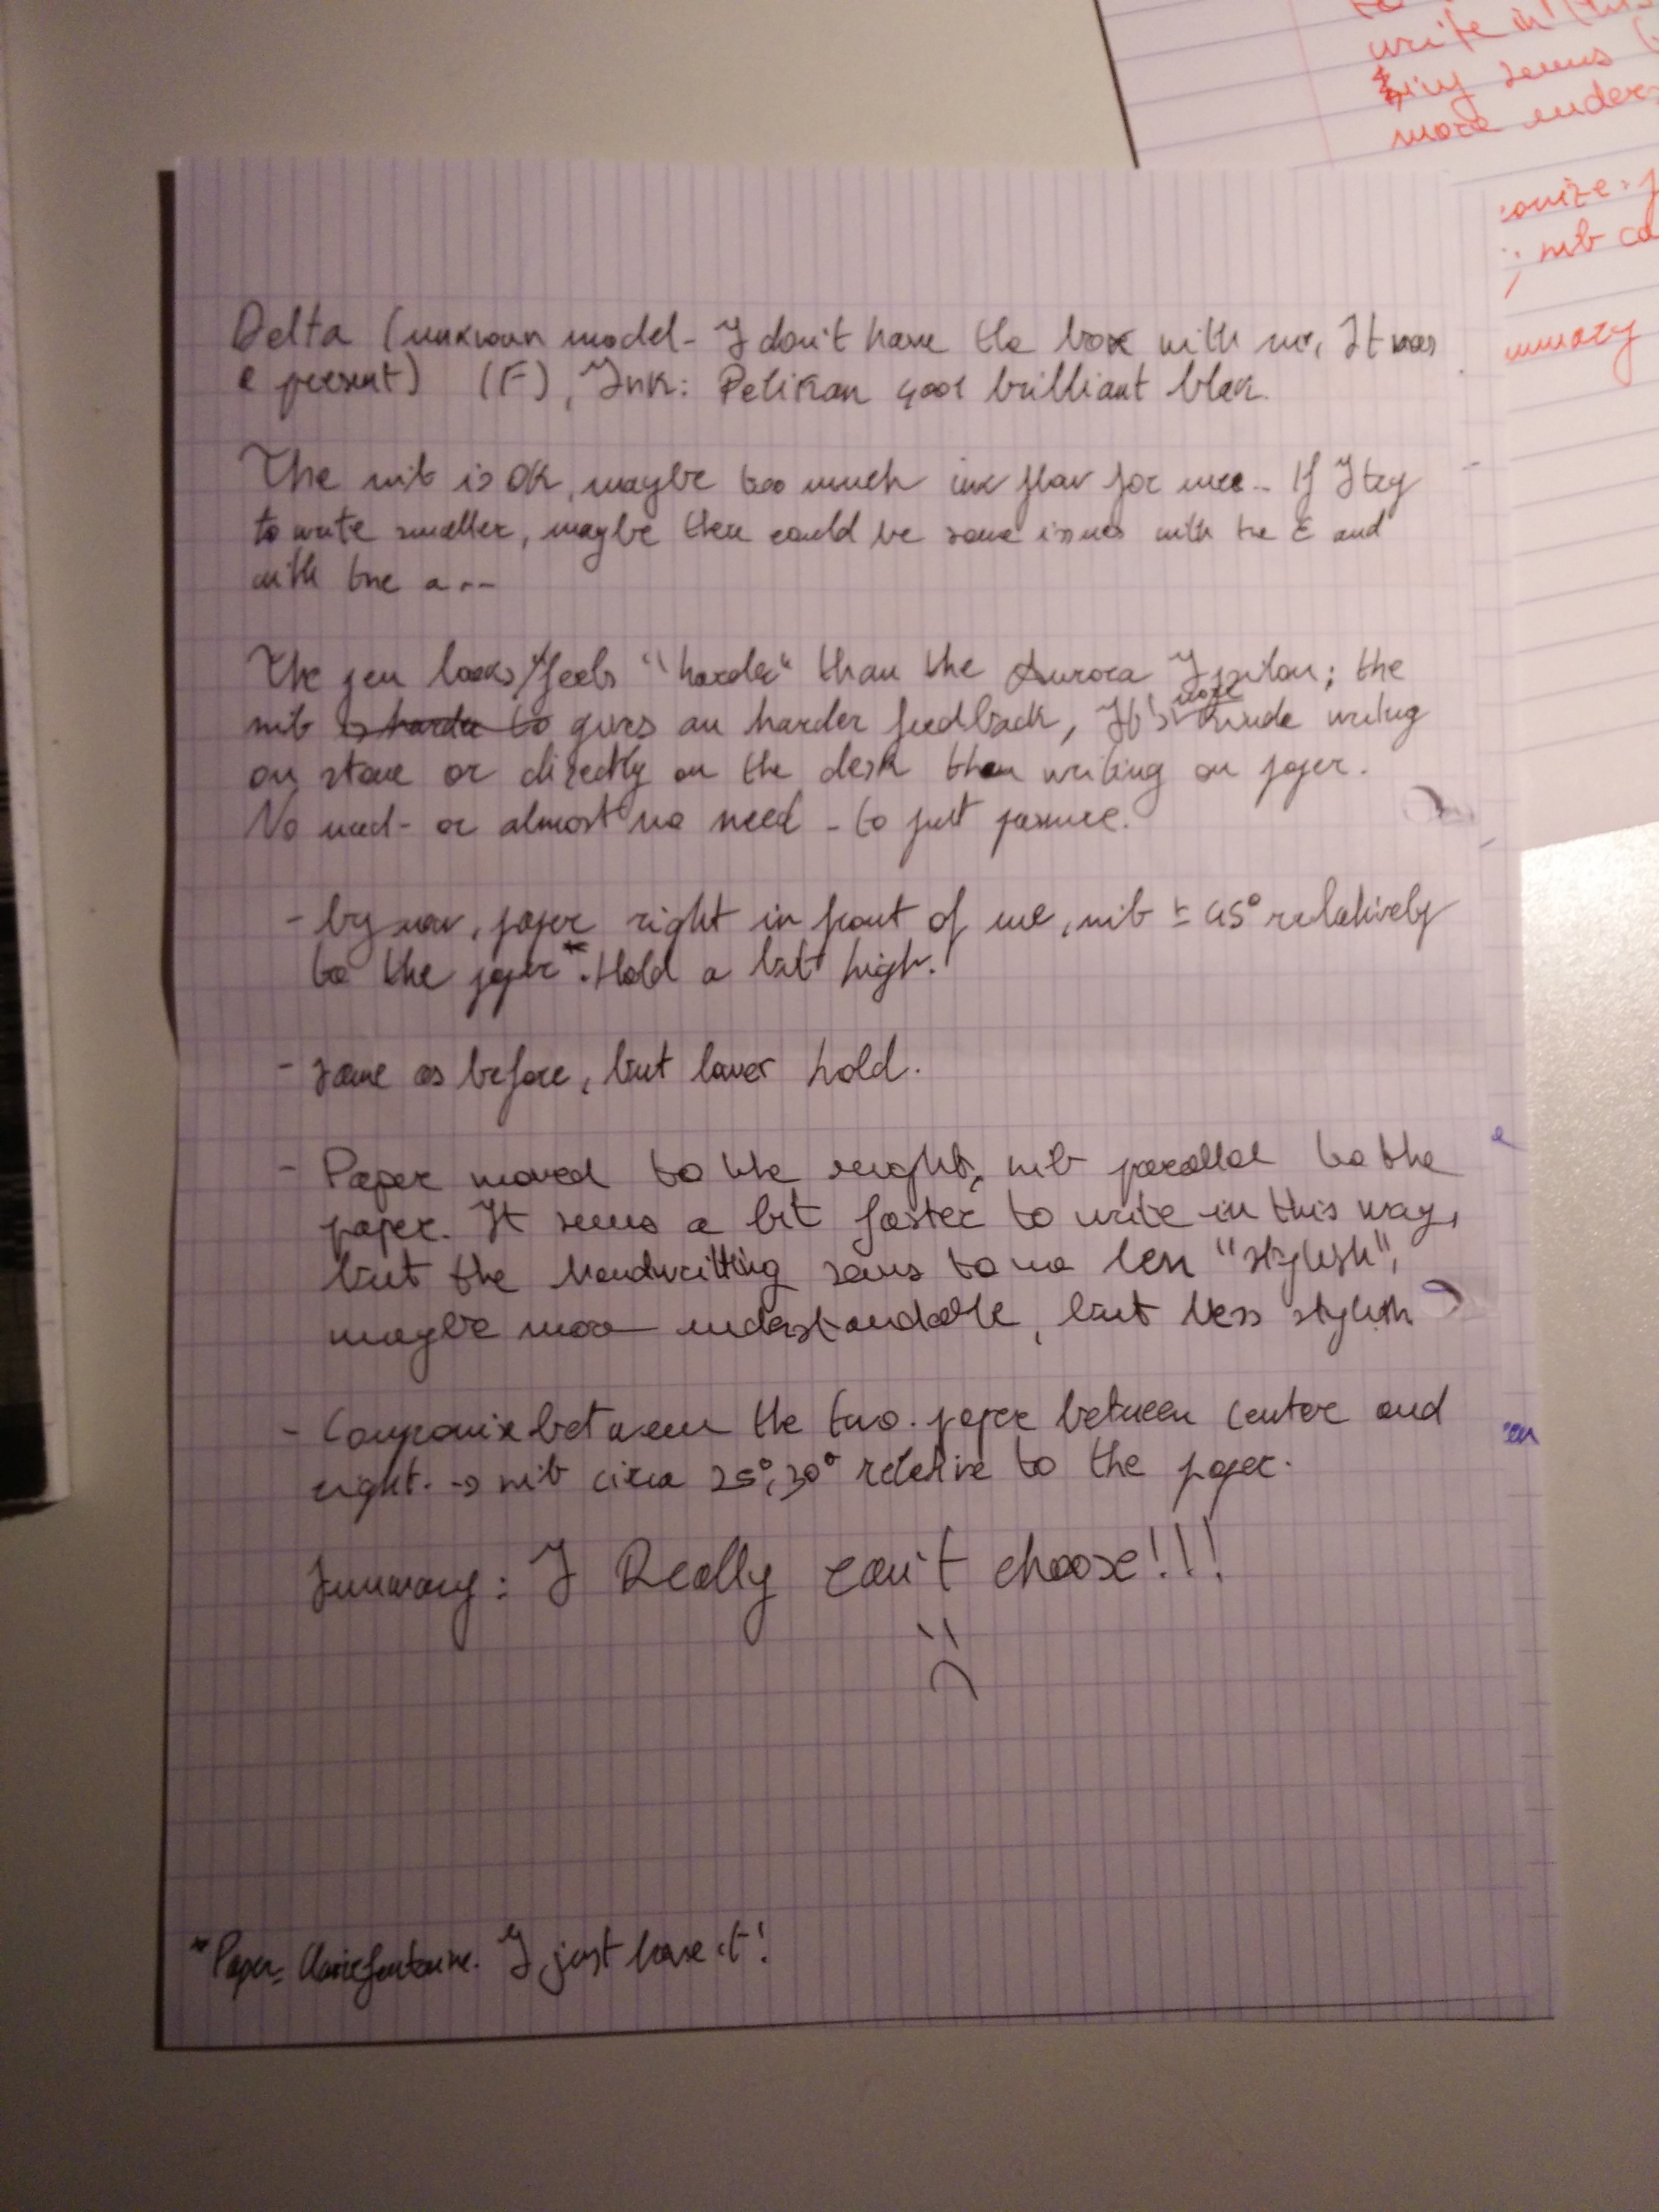 Delta (unknown model - I don't have the box with me, It was
a present) (F), Ink: Pelikan 4001 brilliant black.
The nib is OK, maybe too much ink flow for me.. If I try
to write smaller, maybe there could be some issues with the E and
with the a...
The pen looks/feels "harder" than the Aurora Ipsilon; the
nib is harder to gives an harder feedback, It's more
writing
on stone or directly on the desk than writing on paper.
No need - or almost no need - to put pressure.
- by now, paper right in front of me, nib ± 45° relatively
to the paper*. Hold a bit high.
- same as before, but lower hold.
- Paper moved to the right, nib parallel to the
paper. It seems a bit faster to write in this way,
but the handwritting seems to me less "stylish",
maybe more understandable, but less stylish
- Compromise between the two. paper between center and
right. → nib circa 25°, 30° relative to the paper.
Summary: I Really can't choose!!!
:(
*Paper= Clairefontaine. I just have it!
write in this
seems
more unders
nib ca